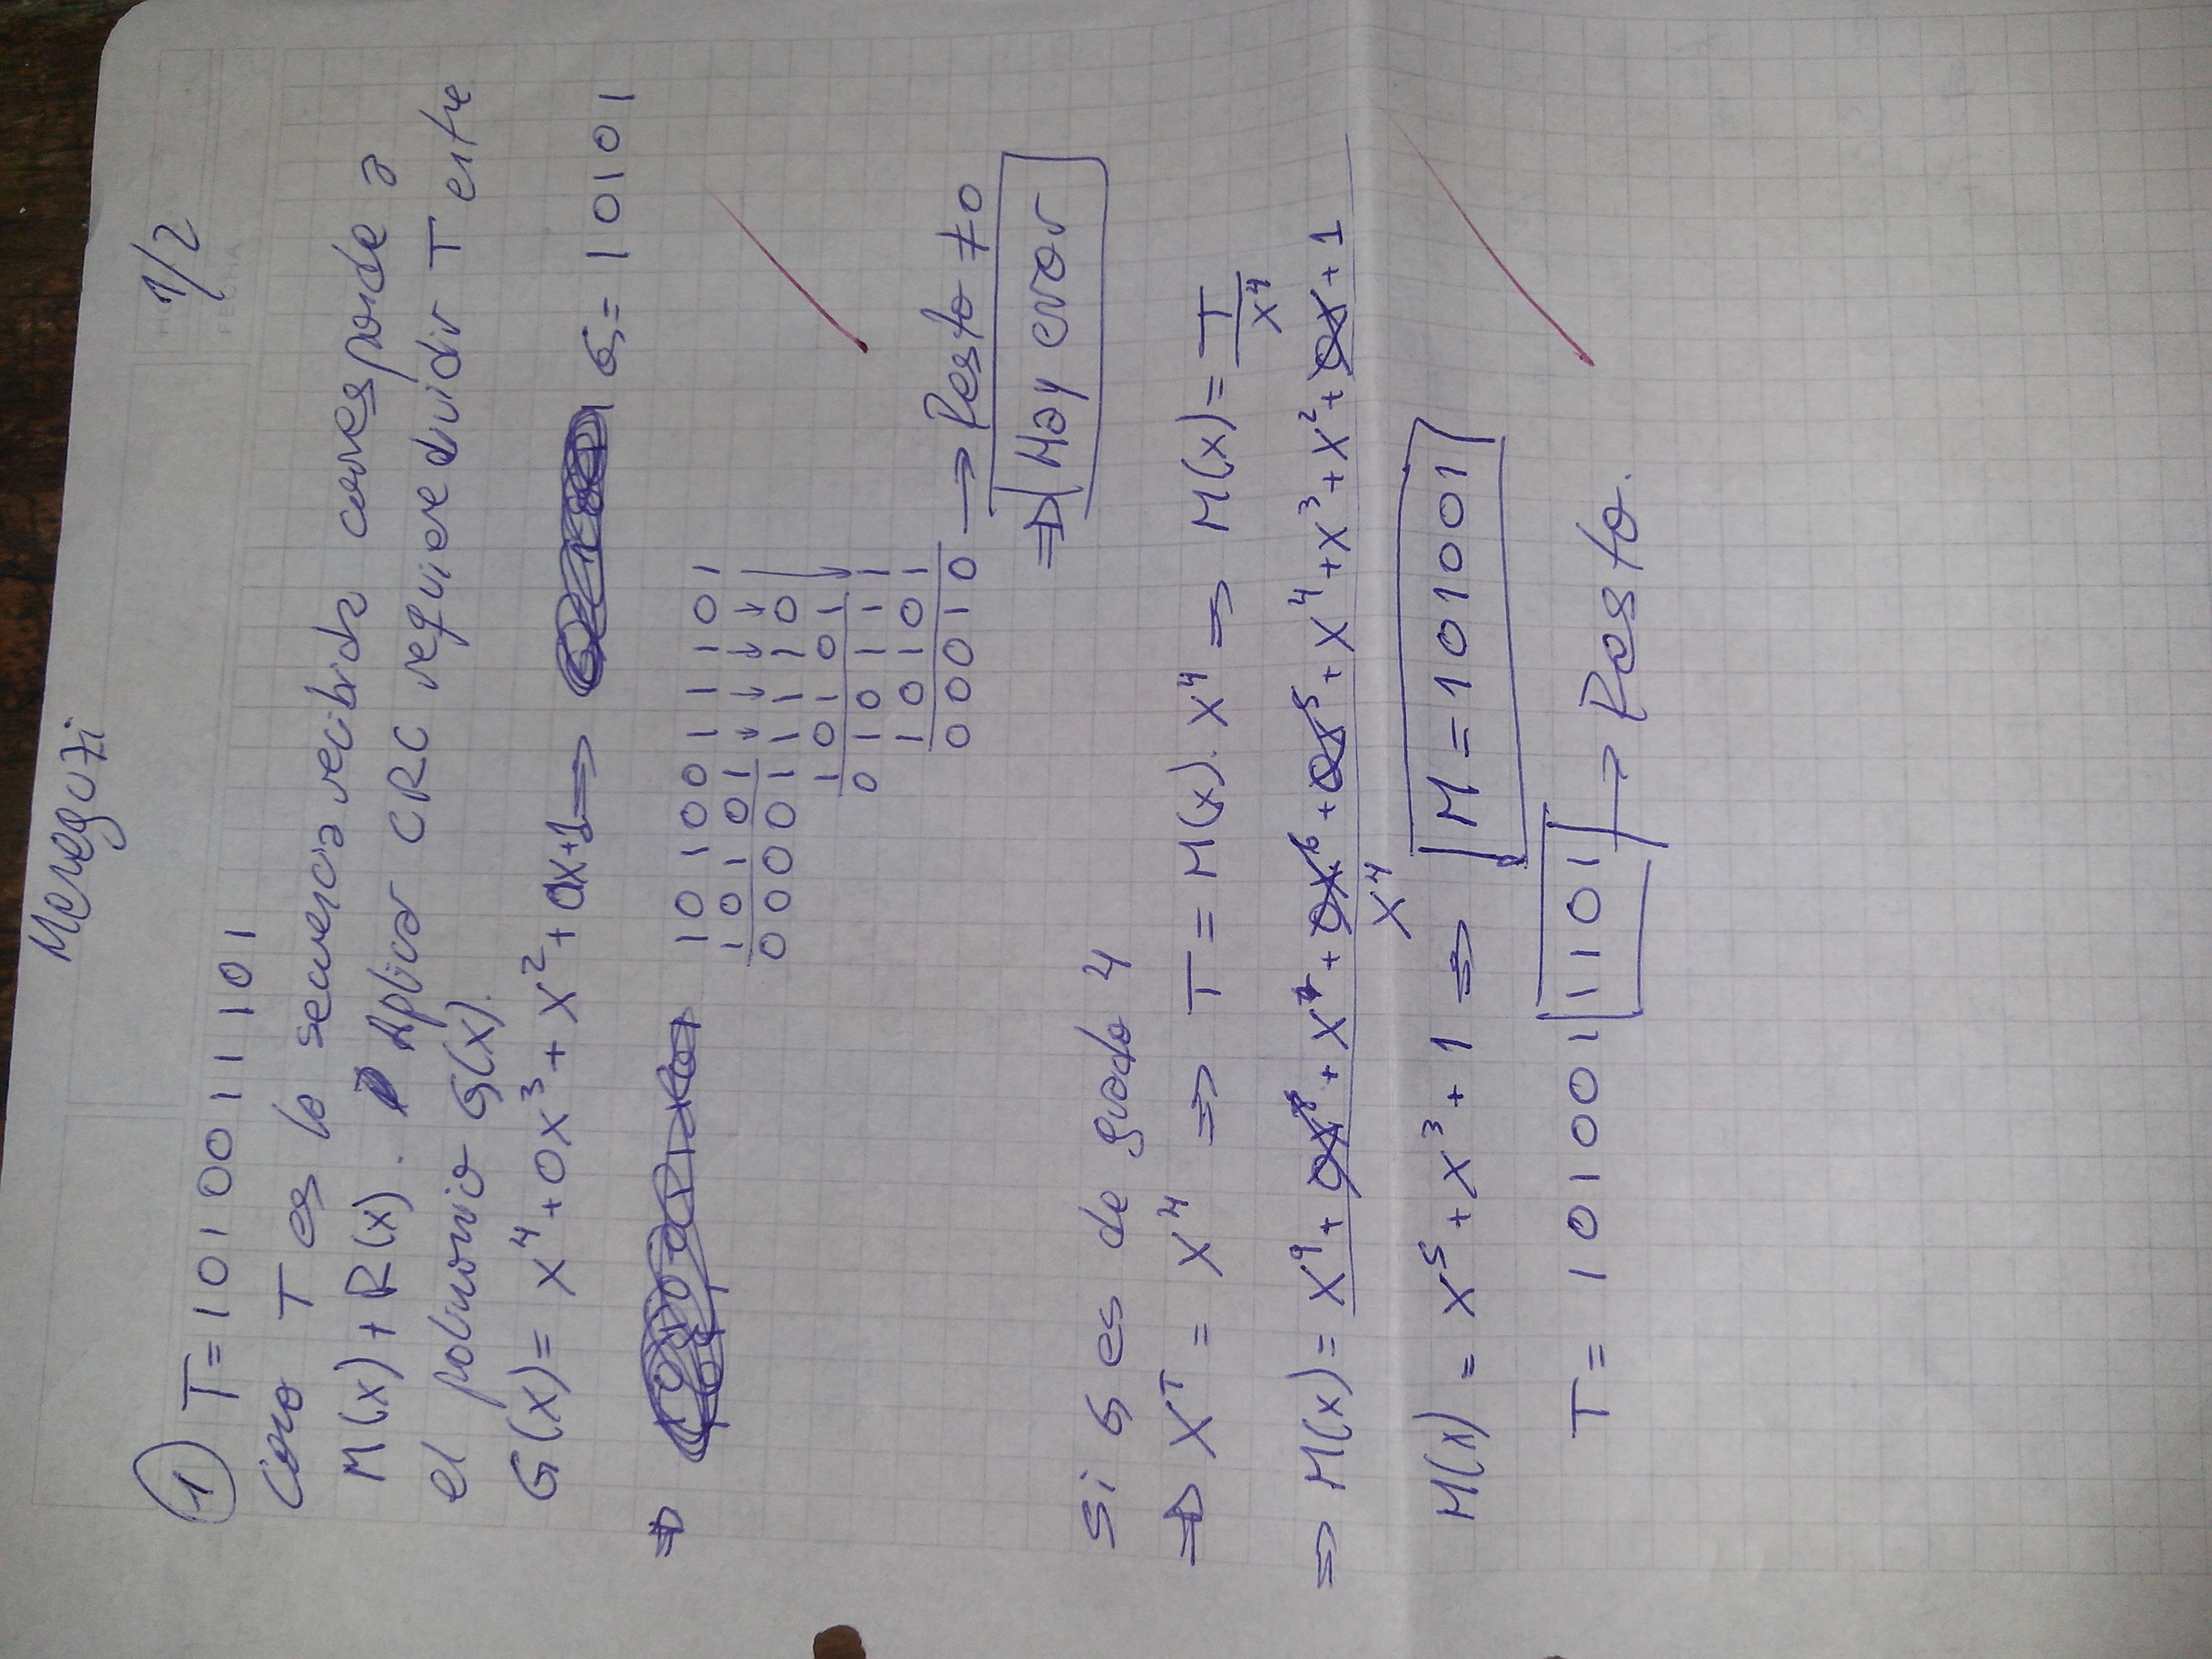 Mereguzi
1/2
① T= 1010011101
Como T es la secuencia recibida corresponde a
M(x) + R(x). Aplicar CRC requiere dividir T entre
el polinomio G(x).
G(x)= x⁴+0x³+x²+0x+1 ⇒ G= 10101
⇒ 1010011101
10101
000011110
10101
010111
10101
00010 → Resto ≠0
⇒ Hay error
Si G es de grado 4
⇒ Xᵀ = X⁴ ⇒ T = M(x). X⁴ ⇒ M(x)= T/X⁴
⇒ M(x)= X⁹+0X⁸+X⁷+0X⁶+0X⁵+X⁴+X³+X²+0X+1
X⁴
M(x) = X⁵+X³+1 ⇒ M=101001
T= 1010011101 → Resto.